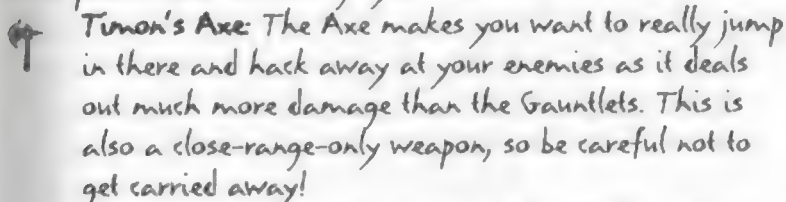 Timon's Axe: The Axe makes you want to really jump
in there and hack away at your enemies as it deals
out much more damage than the Gauntlets. This is
also a close-range-only weapon, so be careful not to
get carried away!